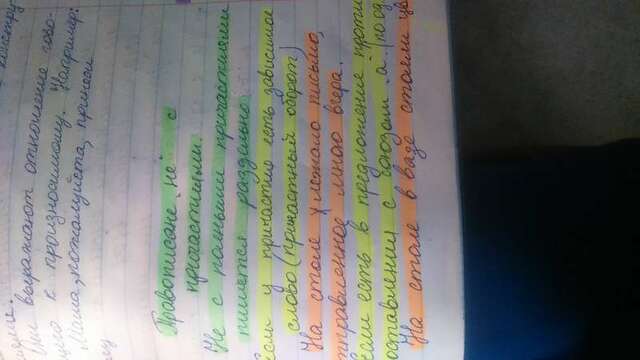 Они выражают отношение гово-
щего к произносимому. Например:
Маша, пожалуйста, принеси
Правописане "не" с
причастиями.
Не с полными причастиями
пишется раздельно
если у причастия есть зависимое
слово (причастный оборот)
На столе лежало письмо,
тправленное мною вчера.
если есть в предложение проти
оставления с союзом "а"
На столе в вазе стояли цв